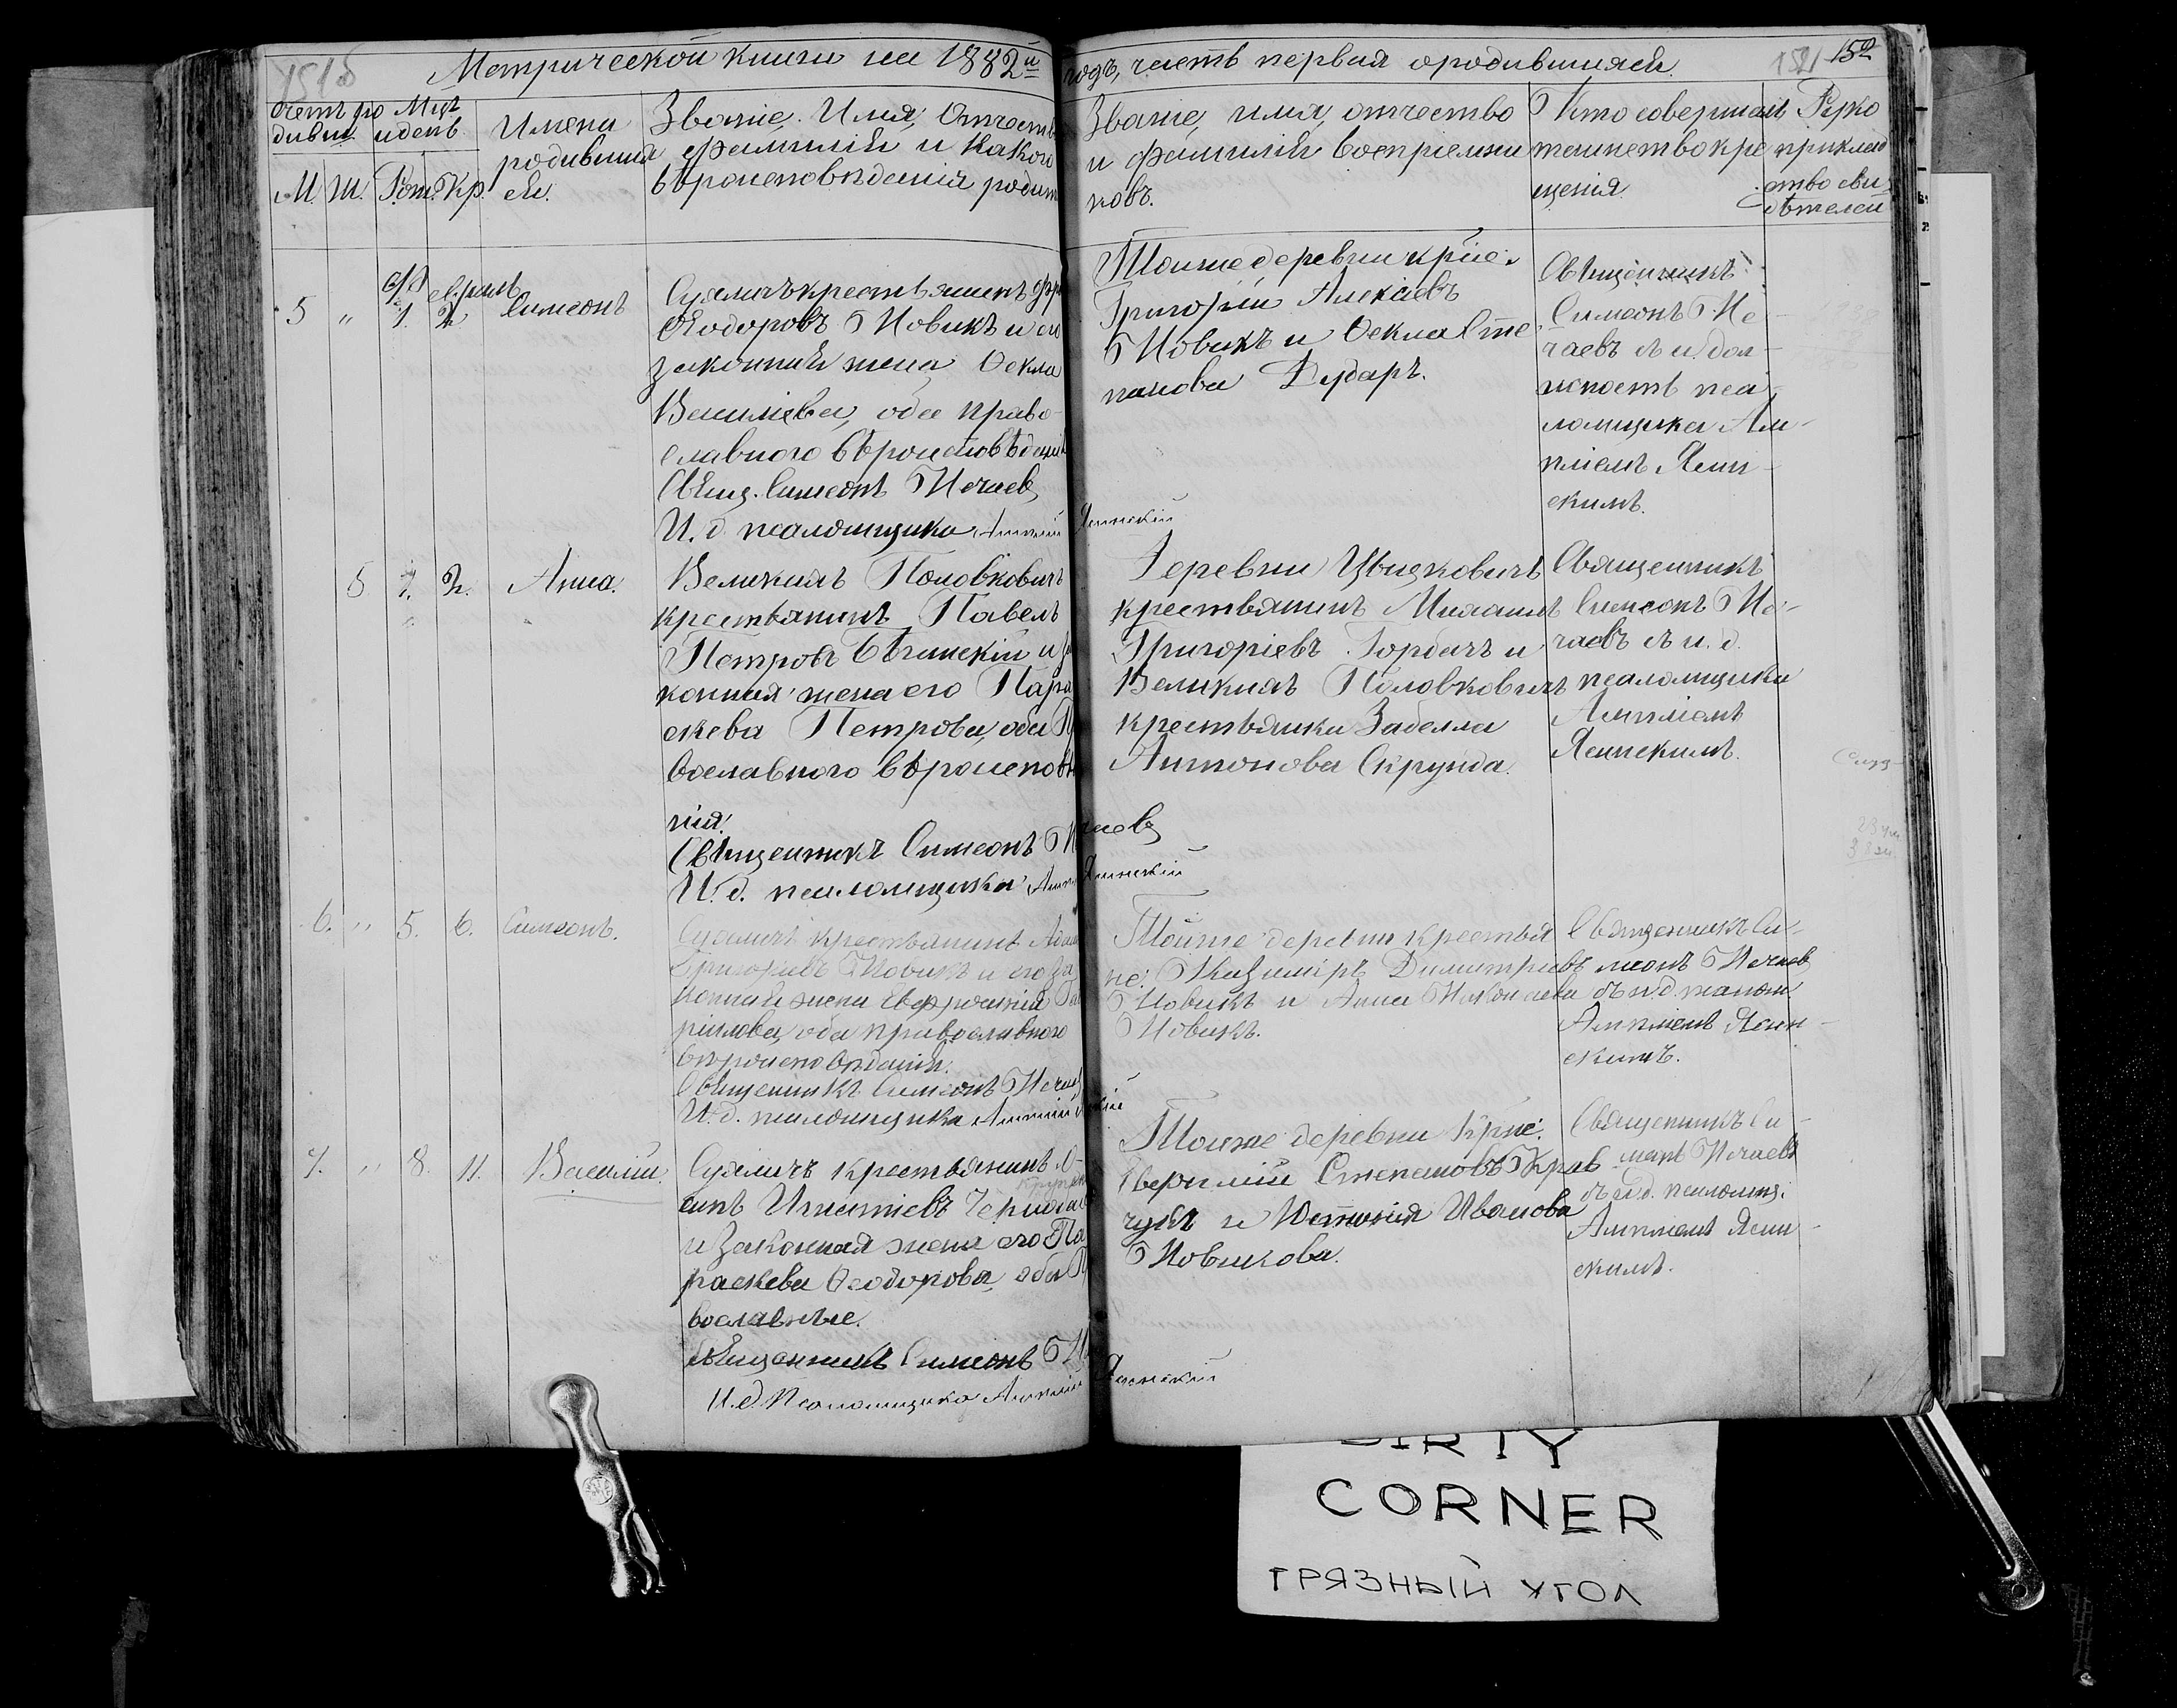 Метрической книги на 1882й годъ, часть первая о родившихся.
151б
1521 152
Счетъ родивш.
Мцъ и день.
М. Ж. Рож. Кр.
Имена родившихся.
Званіе, Имя, Отчество
фамилія и какого
вѣроисповѣданія родит
Званіе, имя, отчество
и фамилія воспріемни
ковъ.
Кто совершалъ
таинство кре
щенія
Руко
приклад
ство сви
дѣтелей
5 " 1. 2. Симеонъ
Суличъ крестьянинъ
Ѳеодоровъ Новикъ и
законная жена Ѳекла
Васильева, оба право-
славнаго вѣроисповѣданія
Свящ. Симеонъ Нечаевъ
И. д. псаломщика Ясинскій
Тоиже деревни крес.
Григорій Алексіевъ
Новикъ и Ѳекла Сте
панова Дударъ.
Священникъ
Симеонъ Не-
чаевъ съ и. дол-
жность пса-
ломщика
Ясин-
скимъ.
5 1. 2. Анна.
Великихъ Половковичъ
крестьянинъ Павелъ
Петровъ и за
конная жена его Пара
скева Петрова, оба П
вославнаго вѣроисповѣ
нія.
Священникъ Симеонъ Нечаевъ
И. д. псаломщика Ясинскій
Деревни
крестьянинъ Михаилъ
Григоріевъ Горбачъ и
Великихъ Половковичъ
крестьянка Забелла
Антонова Скрунда.
Священникъ
Симеонъ Не-
чаевъ съ и. д.
псаломщика
Ясинскимъ.
6. " 5. 6. Симеонъ.
Суличъ крестьянинъ
Григоріевъ Новикъ и его за
конная жена Евфросинія
оба православнаго
вѣроисповѣданія.
Священникъ Симеонъ Нечаевъ
И. д. псаломщика
Тоиже деревни крестья
не: Казиміръ Димитріевъ
Новикъ и Анна Николаева
Новикъ.
Священникъ Си-
меонъ Нечаевъ
съ и. д. псалом
Ясин-
скимъ.
7. " 8. 11. Василій.
Суличъ крестьянинъ О-
сипъ Игнатіевъ
и законная жена его Па
раскева Ѳеодорова, оба П
вославные.
Священникъ Симеонъ
И. д. Псаломщика Ясинскій
Тоиже деревни крес.
Степановъ Крав
чукъ и Юстинія Иванова
Новикова.
Священникъ Си-
меонъ Нечаевъ
съ и. д. псаломщ.
Ясин-
скимъ.
DIRTY
CORNER
ГРЯЗНЫЙ УГОЛ